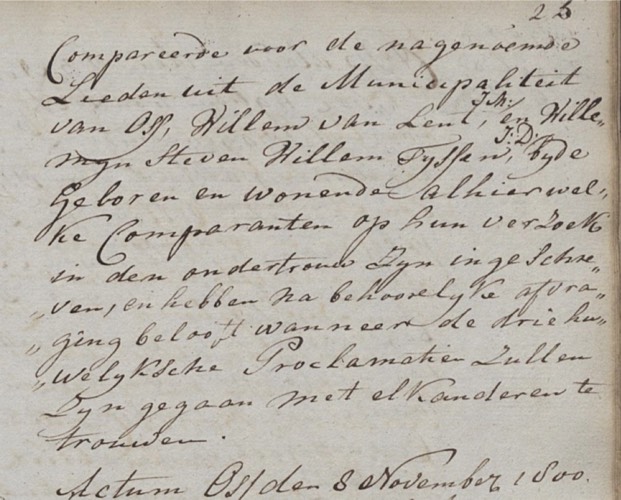 25
Compareerde voor de nagenoemde
Lieden uit de Municipaliteit
van Oss, Willem van Lent, J:M: en Wille„
myn Steven Willem Tyssen, J:D: byde
Geboren en wonende alhier wel„
ke Comparanten op hun verzoek
in den ondertrouw Zyn ingeschre„
„ven, en hebben na behoorelyke afvra„
„ging belooft wanneer de drie hu„
„welyksche Proclamatien Zullen
Zyn gegaan met elkanderen te
trouwen.
Actum Oss den 8 November 1800.